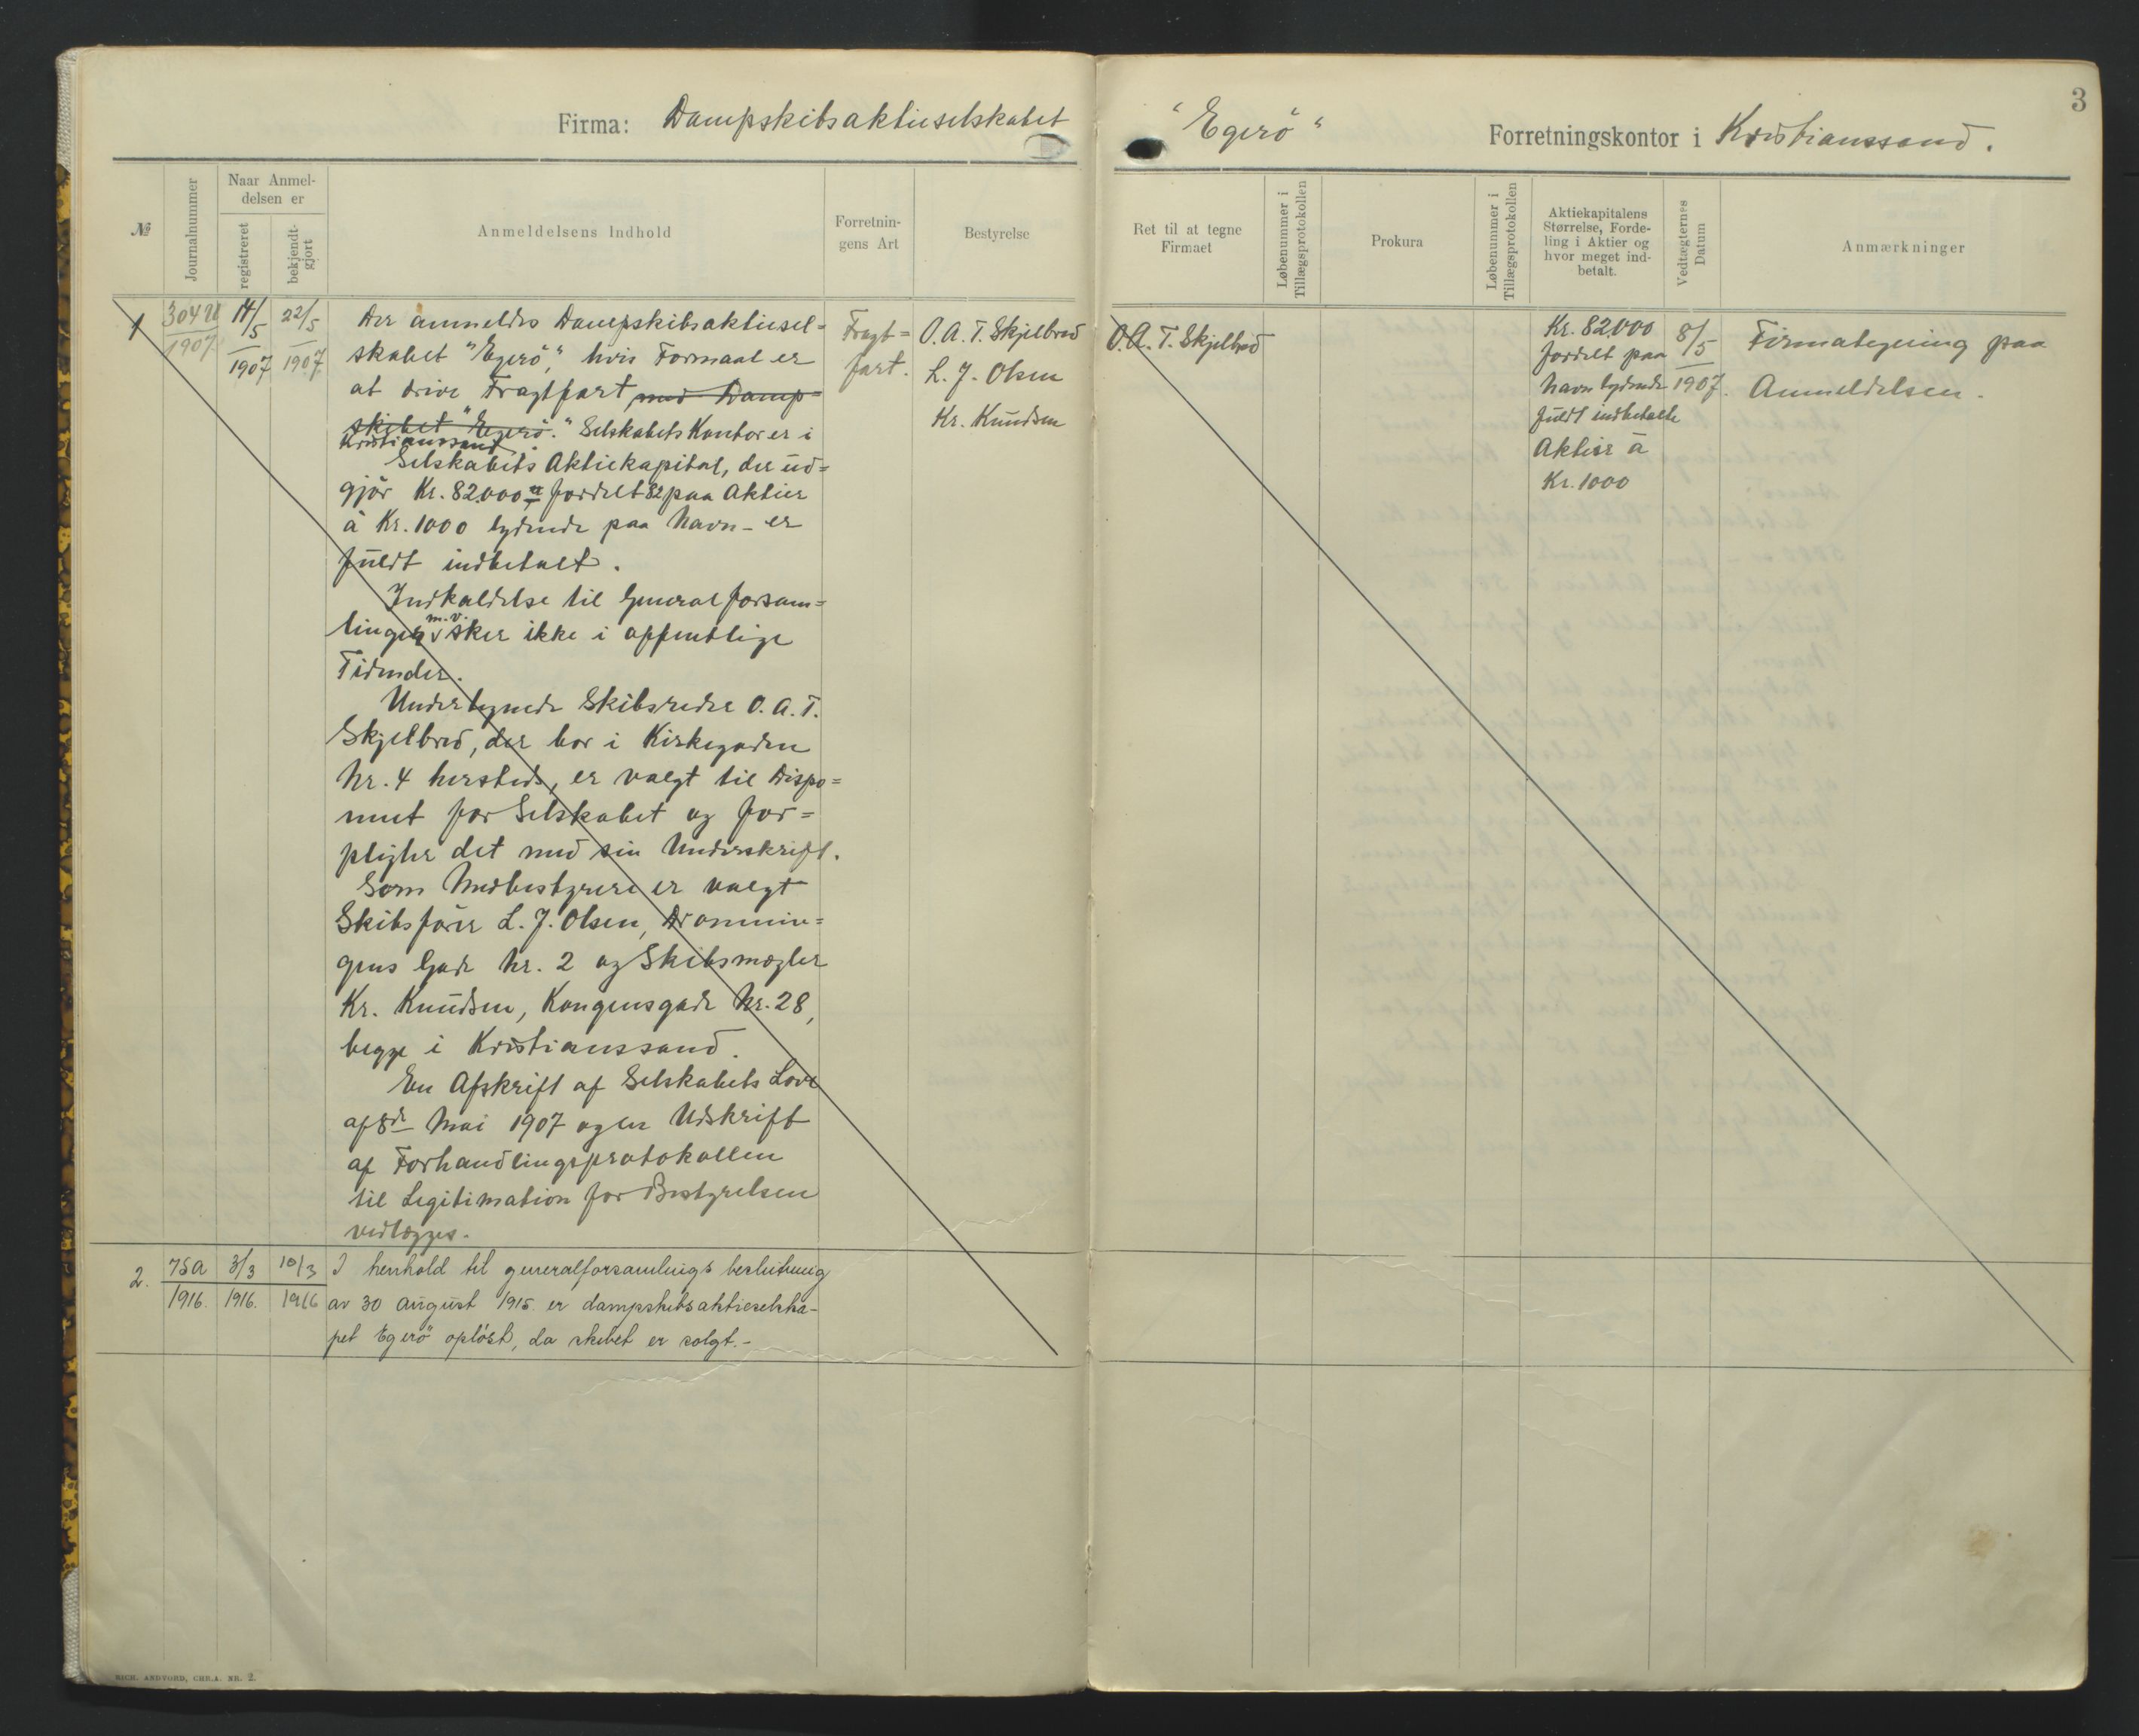 3
Firma: Dampskibsaktieselskabet "Egerö" Forretningskontor i Kristianssand.
№
Journalnummer
Naar Anmel-
delsen er
registreret
bekjendt-
gjort
Anmeldelsens Indhold
Forretnin-
gens Art
Bestyrelse
Ret til at tegne
Firmaet
Løbenummer i
Tillægsprotokollen
Prokura
Løbenummer i
Tillægsprotokollen
Aktiekapitalens
Størrelse, Forde-
ling i Aktier og
hvor meget ind-
betalt.
Vedtægternes
Datum
Anmærkninger
1
1907
14/5
1907
22/5
1907
Der anmeldes Dampskibsaktiesel=
skabet "Egerö", hvis Formaal er
at drive Fragtfart med Damp=
skibet "Egerö." Selskabets Kontor er i
Kristianssand.
Selskabets Aktiekapital, der ud=
gjör Kr. 82.000 fordelt 82 paa Aktier
à Kr. 1000 lydende paa Navn - er
fuldt indbetalt.
Indkaldelse til Generalforsam=
linger m.v. sker ikke i offentlige
Tidender.
Undertegnede Skibsreder O. A. T.
Skjelbred, der bor i Kirkegaden
Nr. 4 hersteds, er valgt til Dispo=
nent for Selskabet og for=
pligter det med sin Underskrift.
Som Medbestyrere er valgt
Skibsförer L. J. Olsen, Dronnin=
gens Gade Nr. 2 og Skibsmægler
Kr. Knudsen, Kongensgade Nr. 28,
begge i Kristianssand.
En Afskrift af Selskabets Love
af 8de Mai 1907 og en Udskrift
af Forhandlingsprotokollen
til Legitimation for Bestyrelsen
vedlægges.
Fragt=
fart.
O. A. T. Skjelbred
L. J. Olsen
Kr. Knudsen
O. A. T. Skjelbred
Kr. 82.000
fordelt paa
Navn lydende
fuldt indbetalte
Aktier à
Kr. 1000
8/5
1907.
Firmategning paa
Anmeldelsen.
2.
75a
1916.
3/3
1916.
10/3
1916
I henhold til generalforsamlings beslutning
av 30 august 1915 er dampskibsaktieselska-
pet Egerö" oplöst, da skibet er solgt.-
RICH. ANDVORD, CHR.A. NR. 2.